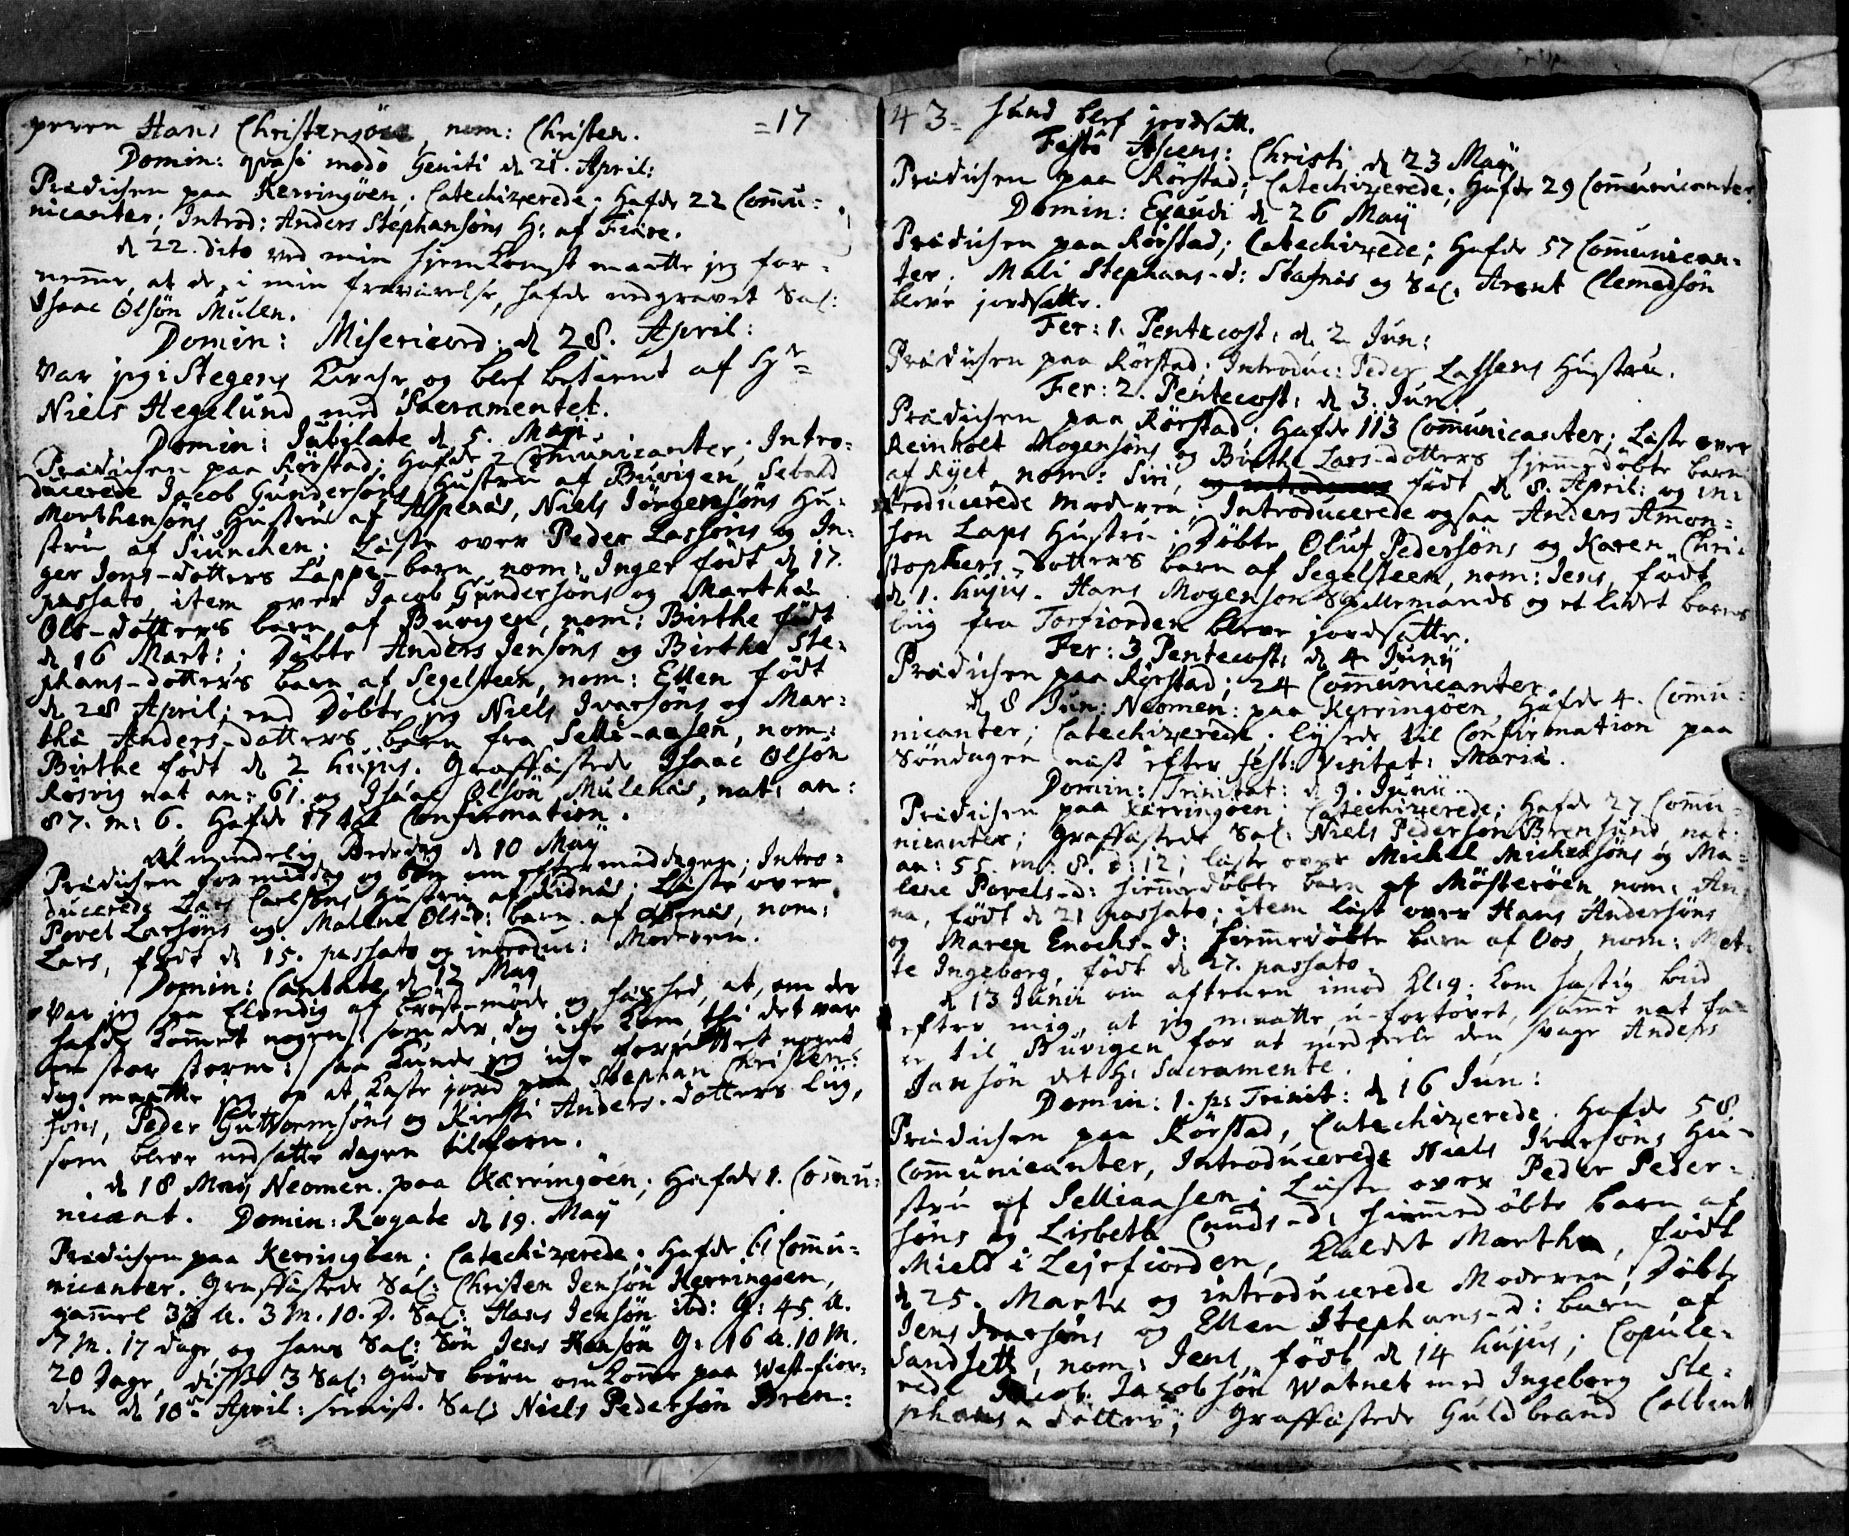 peren Hans Christensön, nom: Christen. =17
Domin: qvasi modo Geniti d 21. April:
Prædichen paa Kerringöen; Catechizerede; Hafde 22 Com̄u=
nicanter; Introd: Anders Stephansöns H: af Fiære.
d 22. dito ved min Hjemkomst maatte jeg for=
nem̄e, at de, i min fraværelse, hafde nedgravet Sal:
Isaac Olsön Mulen.
Domin: Misericord: d 28. April:
Var jeg i Stegens Kirche og blef betient af Hr
Niels Hegelund med Sacramentet.
Domin: Jubilate d 5. Maji
Prædichen paa Rörstad; Hafde 2 Com̄unicanter; Intro=
ducerede Jacob Gundersöns Hustru af Buvigen, Sebald
Morthensöns Hustru af Aspenæs, Niels Jörgensöns Hu=
stru af Siunchen; Læste over Peder Larsöns og In=
ger Jens-dotters Lappe-barn nom: Inger födt d 17.
passato, item over Jacob Gundersöns og Martha
Ols-dotters barn af Buvigen, nom: Birthe födt
d 16 Mart:; Döbte Anders Jensöns og Birthe Ste=
phans-dotters barn af Segelsteen, nom: Ellen födt
d 28 April; end Döbte jeg Niels Ivarsöns og Mar=
tha Anders-dotters barn fra Selli-aasen, nom:
Birthe födt d 2 hujus. Graffæstede Isaac Olsön
Rösvig nat an: 61. og Isaac Olsön Mulenæs, nat: an:
87. m: 6. Hafde 1742 Confirmation.
Almindelig Bededag d 10 Maij
Prædichen formiddag og bön om eftermiddagen; Intro=
ducerede Lars Carlsöns Hustru af Lidnæs; Læste over
Povel Larsöns og Malene Ols-d: barn af nom:
Lars, födt d 15. passato og introduc: Moderen.
Domin: Cantate d 12 May
Var jeg saa Elendig af bröst-möde og hæshed, at, om der
hafde kom̄et nogen: som der dog iche kom, thi det var
en stor storm: saa kunde jeg iche forrættet noget
dog maatte jeg op at kaste jord paa Stephan Christen=
söns, Peder Guttormsöns og Kirsti Anders-dotters liig,
som bleve nedsatte dagen tilforn.
d 18 May Neomen. paa Kærringöen; Hafde 1. Com̄u=
nicant. Domin: Rogate d 19. May
Prædichen paa Kerringöen; Catechizerede; Hafde 61 Com̄u=
nicanter. Graffæstede Sal: Christen Jensön Kerringöen,
gam̄el 33 A. 3 M. 10. D. Sal: Hans Jensön ibd: G: 45. A.
7 M. 17 dage, og hans Sal: Sön Jens Hansön G: 16 A. 10 M.
20 Dage, disse 3 Sal: Guds börn omkom̄e paa West-fior=
den d 10de April: sidst. Sal: Niels Pedersön Bren=
43= sund blef jordsatt.
Festo Ascens: Christi d 23 Maij
Prædichen paa Rörstad; Catechizerede; Hafde 29 Com̄unicanter.
Domin: Exaudi d 26 Maij
Prædichen paa Rörstad; Catechizede; Hafde 57 Com̄unican=
ter. Mali Stephans-d: Stafnæs og Sal. Arent Clemedsön
bleve jordsatte.
Fer: 1. Pentecost: d. 2 Jun:
Prædichen paa Rörstad; Introduc: Peder Lassens Hustru.
Fer: 2. Pentecost: d 3. Juni
Prædichen paa Rörstad; Hafde 113 Com̄unicanter; Læste over
Reinholt Mogensöns og Birthe Lars-dotters hjemmedöbte barn
af Röjet, nom: Siri, födt d 8. April: og in=
troducerede moderen; Introducerede ogsaa Anders Amon=
sön Laps Hustru; Döbte Oluf Pedersöns og Karen Chri=
stophers-dotters barn af Segelsteen, nom: Jens, födt
d 1. hujus. Hans Mogenson Spillemands og et lidet barns
liig fra Torfiorden bleve jordsatte.
Fer: 3. Pentecost: d 4. Junij
Prædichen paa Rörstad; 24 Com̄unicanter.
d 8 Jun: Neomen: paa Kerringöen, Hafde 4. Com̄u=
nicanter; Catechizerede. lysede til Confirmation paa
Söndagen næst efter fest: visitat: Mariæ.
Domin: Trinitat: d 9. Junii.
Prædichen paa Kærringöen; Catechizerede; Hafde 27 Com̄u=
nicanter; Graffæstede Sal: Niels Pedersön Brensund nat:
an: 55. m: 8. d. 12; læste over Michel Michelsöns og Ma=
lene Povels-d: hiem̄edöbte barn af Mösteröen nom: An=
na, födt d 21 passato; item læst over Hans Andersöns
og Maren Enochs-d: hiem̄edöbte barn af Oos, nom: Met=
te Ingeborg, födt d 27. passato.
d 13 Junii om aftenen imod Kl: 9. kom hastig bud
efter mig, at jeg maatte, u-fortövet, sam̄e nat fa=
re til Buvigen for at meddeele den svage Anders
Jansön det H: Sacramente.
Domin: 1. p: Trinit: d 16 Jun:
Prædichen paa Rörstad, Catechizerede. Hafde 58
Com̄unicanter, Introducerede Niels Ivarsöns Hu=
stru af Selliaasen; Læste over Peder Peder=
söns og Lisbeth Cnuds-d: hiem̄edöbte barn af
Mield i Lejrfiorden, Kaldet Martha, födt
d 25. Marti og introducerede Moderen; Döbte
Jens Ivarsöns og Ellen Stephans-d: barn af
Sandsett, nom: Jens, födt d 14 hujus; Copule=
rede Jacob Jacobsön Watnet med Ingeborg Ste=
phans-dötter; Graffæstede Guldbrand Colbent